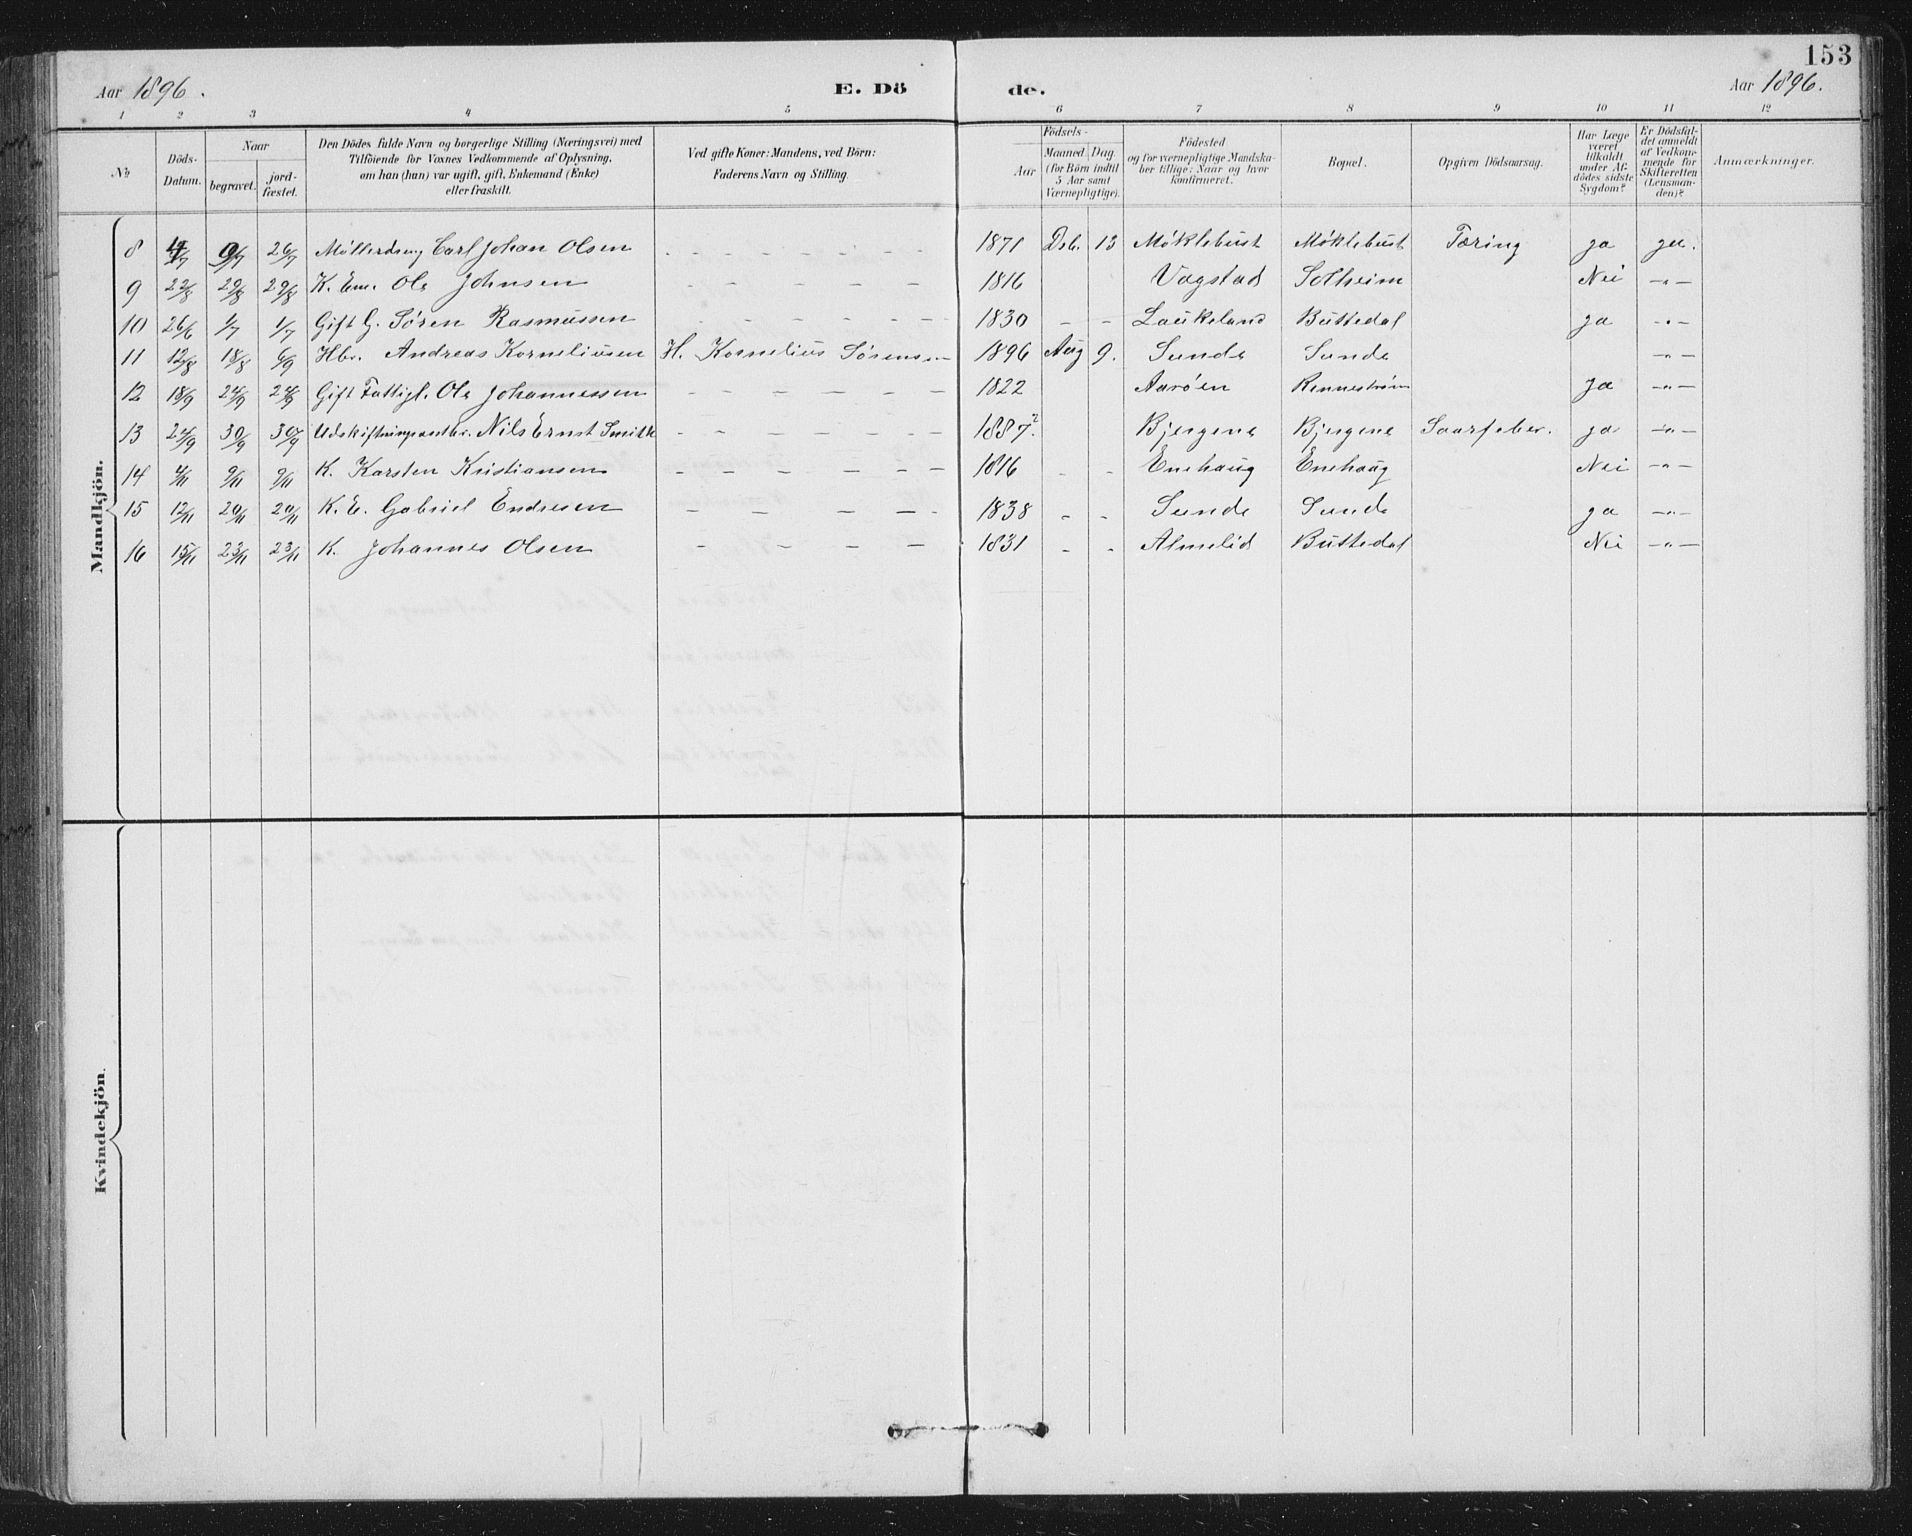 153
Aar 1896. E. Dö de. Aar 1896.
1 2 3 4 5 6 7 8 9 10 11 12
No Döds-Datum. Naar begravet. jord-fæstet. Den Dödes fulde Navn og borgerlige Stilling (Næringsvei) med Tilföiende for Voxnes Vedkommende af Oplysning, om han (hun) var ugift, gift, Enkemand (Enke) eller fraskilt. Ved gifte Koner: Mandens, ved Börn: Faderens Navn og Stilling. Födsels- Aar Maaned Dag (for Börn indtil 5 Aar samt Værnepligtige). Födested og for værnepligtige Mandskaber tillige: Naar og hvor konfirmeret. Bopæl. Opgiven Dödsaarsag. Har Læge været tilkaldt under Afdödes sidste Sygdom? Er Dödsfaldet anmeldt af Vedkommende for Skifteretten (Lensmanden)? Anmærkninger.
Mandkjön.
8 9/7 26/7 Møllerdreng Carl Johan Olsen - - - - - - 1871 Dsb. 13 Møklebust Møklebust Tæring ja ja.
9 22/8 29/8 29/8 K. Em. Ole Johnsen - - - - - 1816 Vagstad Solheim Nei -"-
10 26/6 1/7 1/7 Gift G. Sören Rasmussen - - - - - - 1830 - - Laukeland Buttedal ja -"-
11 12/8 18/8 6/9 Hbr. Andreas Korneliusen H. Kornelius Sørensen 1896 Aug 9. Sunde Sunde -"-
12 18/9 24/9 24/9 Gift Fattigl. Ole Johannessen - - - - - 1822 Aarøen Rennestrøm ja -"-
13 24/9 30/9 30/9 Udskiftningsassbr. Nils Ernst Smith - - - - - 1887?. Bjergene Bjergene Saarfeber. ja -"-
14 4/11 9/11 9/11 K. Karsten Kristiansen - - - - - - 1816 - - Enehaug Enehaug Nei -"-
15 12/11 20/11 20/11 K. E. Gabriel Endresen - - - - - 1838 - - Sunde Sunde ja -"-
16 15/11 23/11 23/11 K. Johannes Olsen - - - - 1831 - - Almelid Buttedal Nei -"-
Kvindekjön.